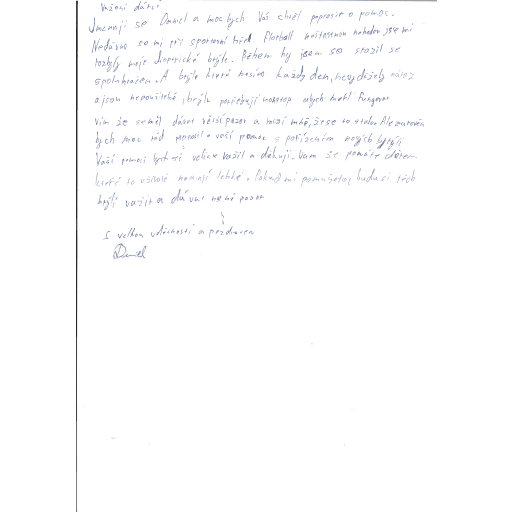 Vážení dárci
Jmenuji se Daniel a moc bych Vás chtěl poprosit o pomoc.
Nedávno se mi při sportovní hře Florball nešťastnou nahodou jsem mi
rozbyly moje dioptrické brýle. Během hry jsem se srazil se
spoluhráčem. A brýle které nosím každý den, nevydržely náraz
a jsou nepoužitelné, brýle potřebuji nonstop abych mohl fungovat
Vím že se měl dávat větší pozor a mrzí mně, že se to stalo. Ale
bych moc rád poprosil o vaší pomoc s pořízením nových brýlí
Vaší pomoci bych si velice vážil a děkuji Vám že pomáte dětem
které to v životě nemají lehké. Pokud mi pomůžete, budu si těch
brýlí vážit a dávat na ně pozor
S velkou vděčností a pozdravem
Daniel